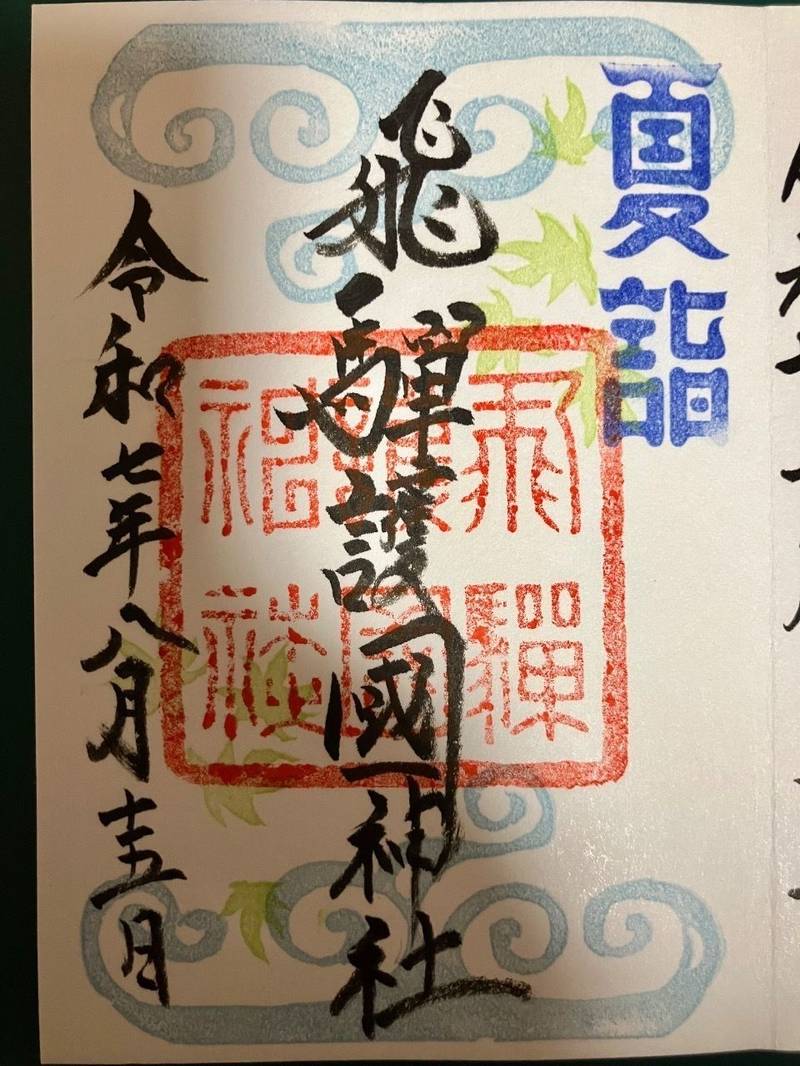 夏詣
飛騨護國神社
飛騨
護國
神社
令和七年八月十五日